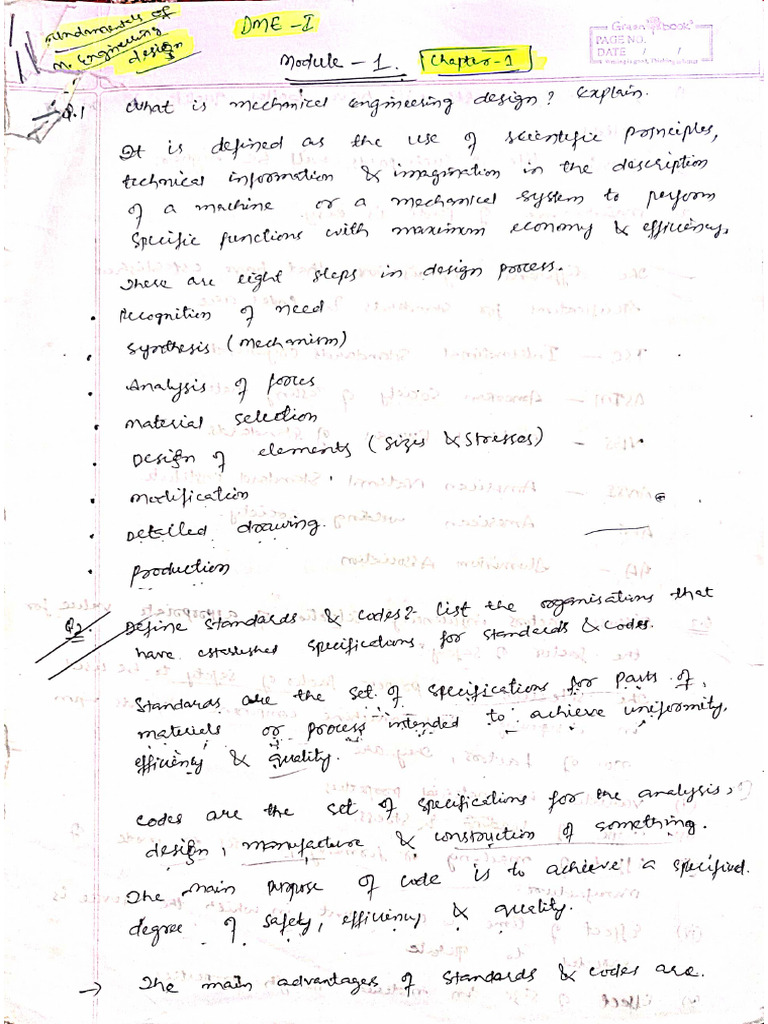 Fundamentals of
M. Engineering
design
DME - I
Module - 1.
Chapter-1
Green book
PAGE NO.
DATE / /
Q.1 What is mechnical engineering design? Explain.
It is defined as the use of scientific principles,
technical information & imagination in the description
of a machine or a mechanical system to perform
specific functions with maximum economy & efficiency.
These are eight steps in design process.
• Recognition of need
• Synthesis (Mechanism)
• Analysis of forces
• material selection
• Design of elements (Sizes & Stresses)
• modification
• Detailed drawing.
• production
Q2. Define Standards & codes? List the organisations that
have established specifications for standards & codes.
Standards are the set of specifications for parts of,
materiels or process intended to achieve uniformity,
efficiency & quality.
codes are the set of specifications for the analysis,
design, manufacture & construction of something.
The main purpose of code is to achieve a specified
degree of safety, efficiency & quality.
→ The main advantages of standards & codes are.